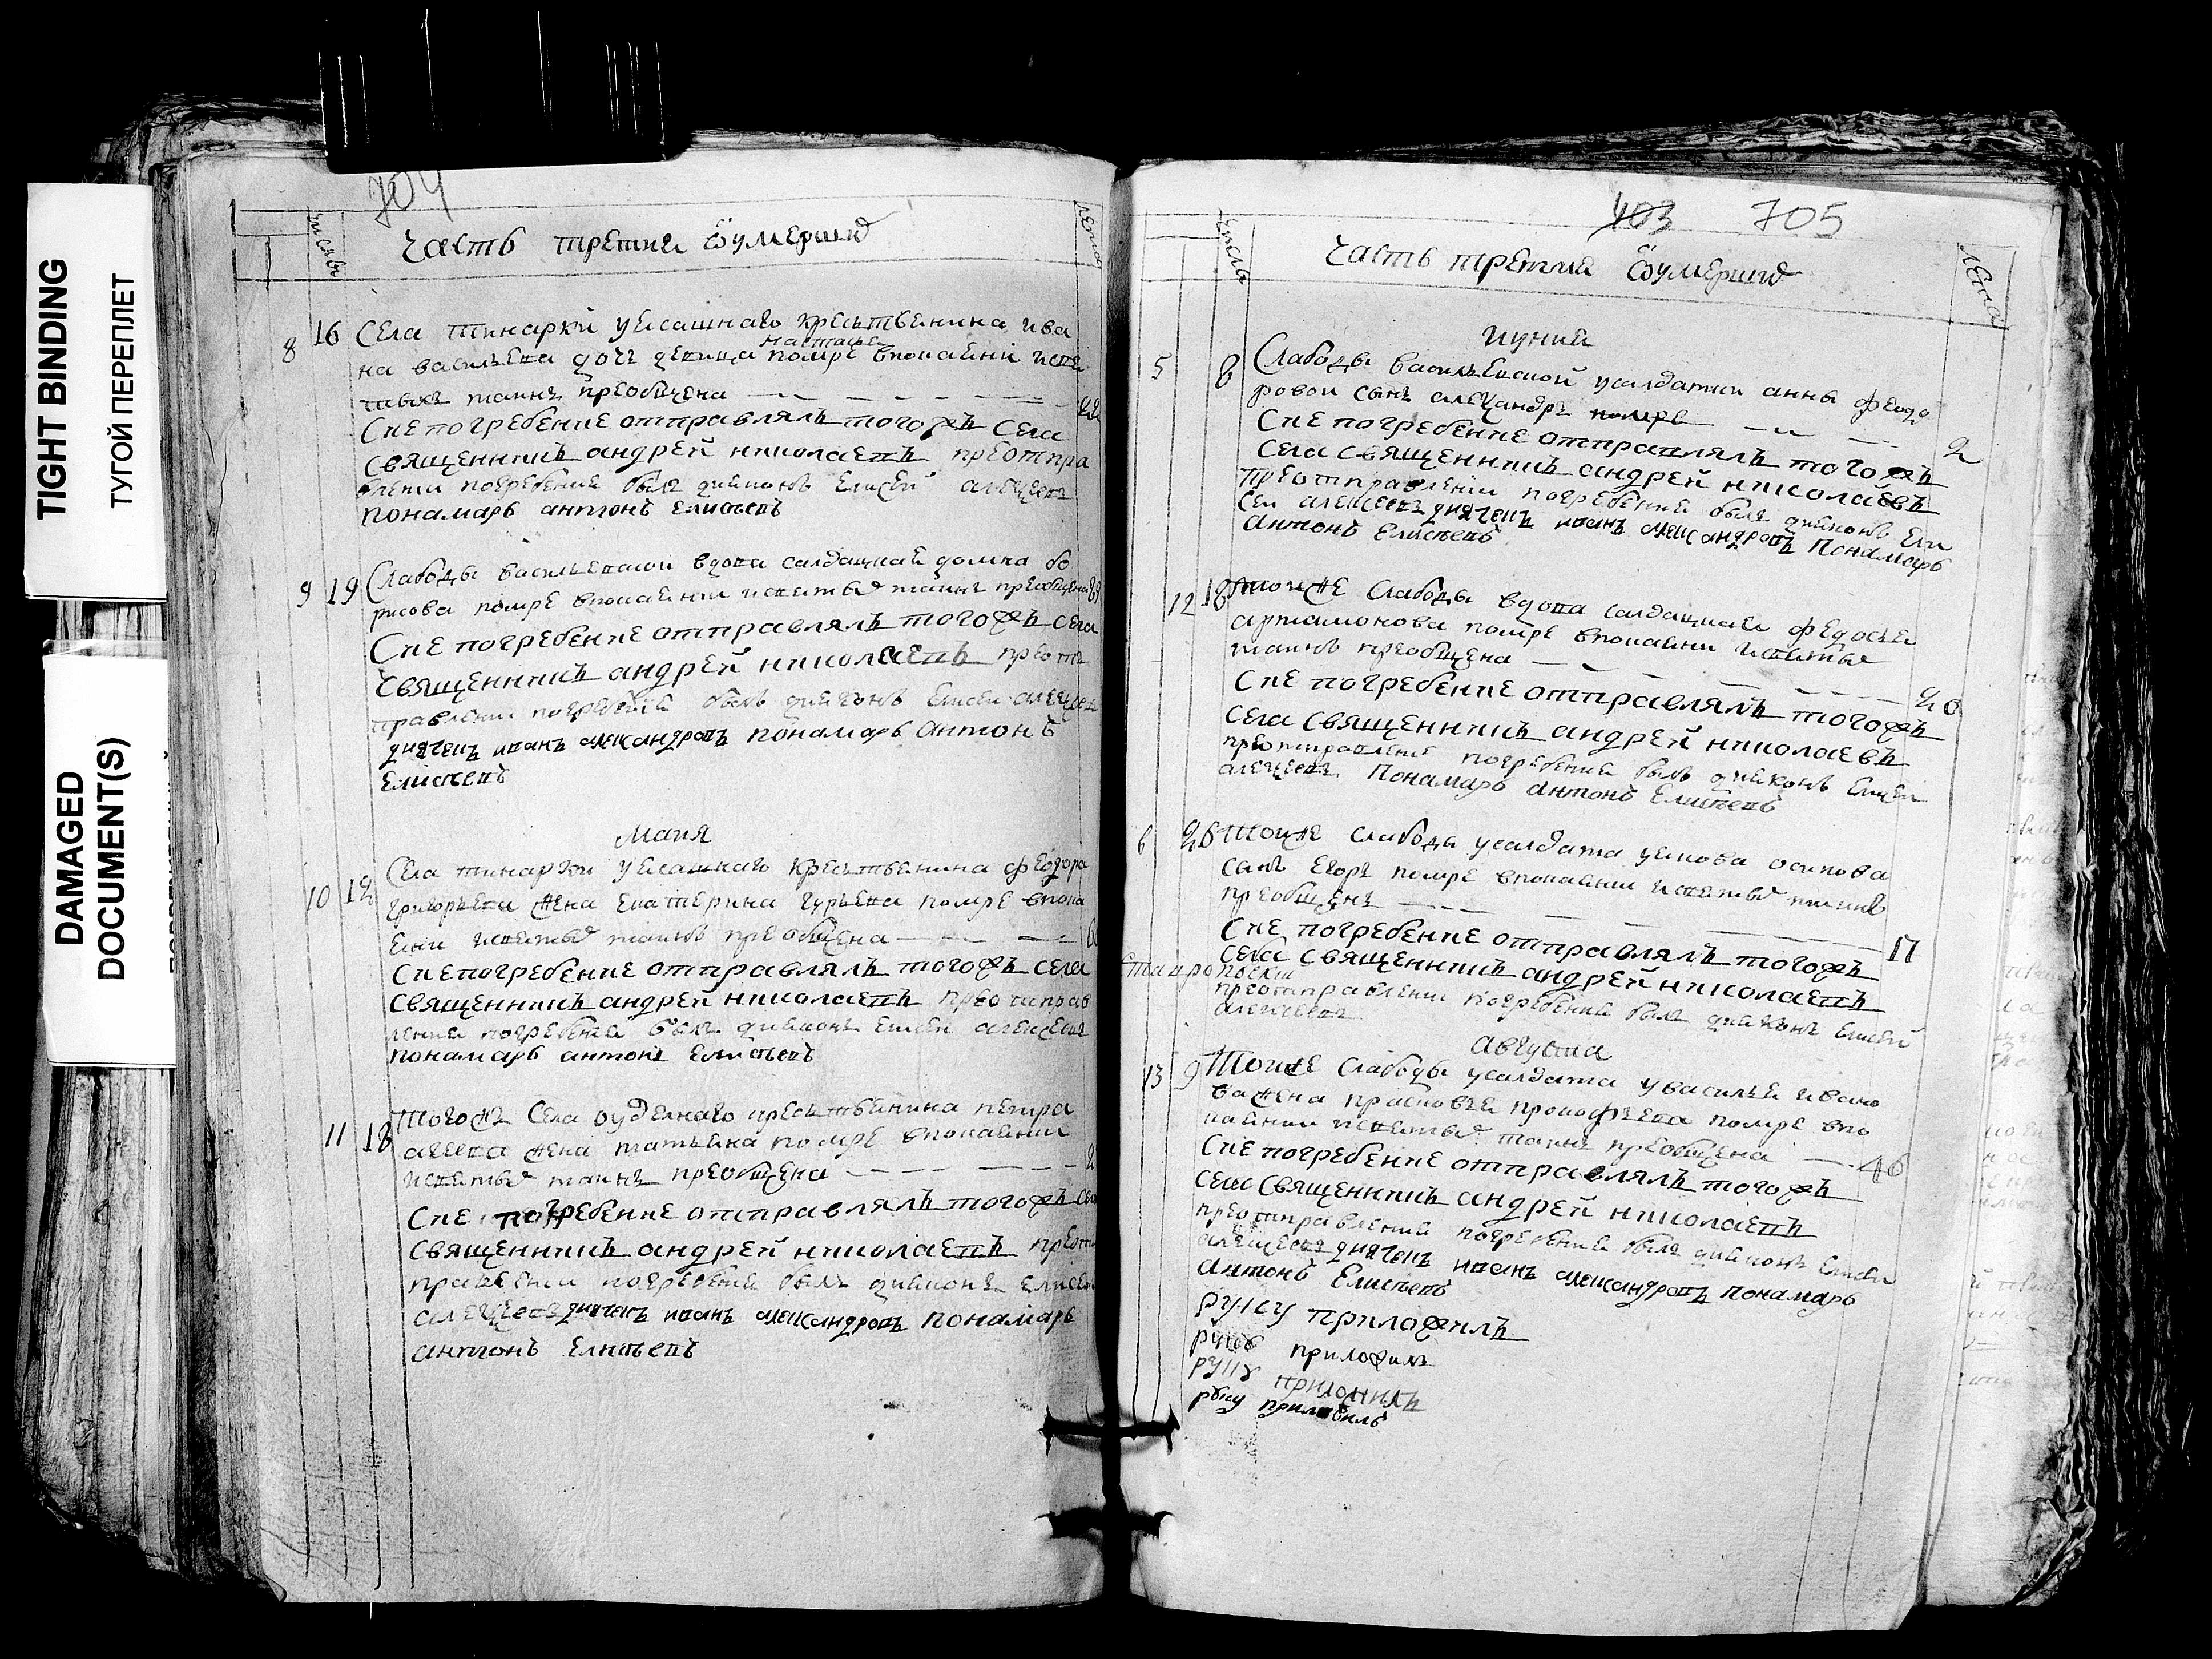 TIGHT BINDING
ТУГОЙ ПЕРЕПЛЕТ
DAMAGED
DOCUMENT(S)
704
числа
Часть третия ѿумершихъ
лета
8 16 Села тинарки уясашнаго крестьянина ива
на васильева дочь девица настасья помре впокаянии исвя
тыхъ таинъ преобщена
Сие погребение отправлялъ того жъ Села
священникъ андрей николаевъ преотпра
влении погребения былъ дияконъ Елисей алексеевъ
понамарь антонъ Елисеевъ
9 19 Слабоды васильевской вдова салдацкая домна бо
рисова помре впокаянии исвятыхъ таинъ преобщена
Сие погребение отправлялъ того жъ села
священникъ андрей николаевъ преот
правлении погребения былъ дияконъ Елисеи алексеевъ
диячекъ иванъ александровъ понамарь Антонъ
Елисеевъ
Маия
10 12 Села тинарки уясашнаго крестьянина феодора
григорьева жена Екатерина гурьева помре впока
янии исвятыхъ таинъ преобщена
Сие погребение отправлялъ того жъ села
священникъ андрей николаевъ преотправ
лении погребения былъ дияконъ Елисей алексеевъ
понамарь антонъ Елисеевъ
11 18 Того жъ Села оудельнаго крестьянина петра
жена татьяна помре впокаянии
исвятыхъ таинъ преобщена
Сие погребение отправлялъ того жъ села
священникъ андрей николаевъ преот
правлении погребения былъ дияконъ Елисей
алексеевъ диячекъ иванъ александровъ понамарь
антонъ Елисеевъ
403 705
числа
Часть третия ѿумершихъ
лета
июния
5 8 Слабоды васильевской усалдатки анны феодо
ровой сынъ александръ помре
2
Сие погребение отправлялъ того жъ
села священникъ андрей николаевъ
преотправлении погребения былъ дияконъ Ели
сеи алексеевъ диячекъ иванъ александровъ Понамарь
Антонъ Елисеевъ
12 18 тоиже Слабоды вдова салдацкая федосья
артамонова помре впокаянии исвятыхъ
таинъ преобщена
20
Сие погребение отправлялъ того жъ
села священникъ андрей николаевъ
преотправлении погребения былъ дияконъ Елисеи
алексеевъ Понамарь антонъ Елисеевъ
6 26 Тоиже слабоды усалдата осипова
сынъ Егоръ помре впокаянии исвятыхъ таинъ
преобщенъ
17
Сие погребение отправлялъ того жъ
села священникъ андрей николаевъ
преотправлении погребения былъ дияконъ Елисеи
алексеевъ
Августа
13 9 Тоиже Слабоды усалдата увасилья ивано
ва жена прасковья прокофьева помре впо
каянии исвятыхъ таинъ преобщена
46
Сие погребение отправлялъ того жъ
села священникъ андрей николаевъ
преотправлении погребения былъ дияконъ Елисеи
алексеевъ диячекъ иванъ александровъ понамарь
Антонъ Елисеевъ
руку приложилъ
руку приложилъ
руку приложилъ
руку приложилъ